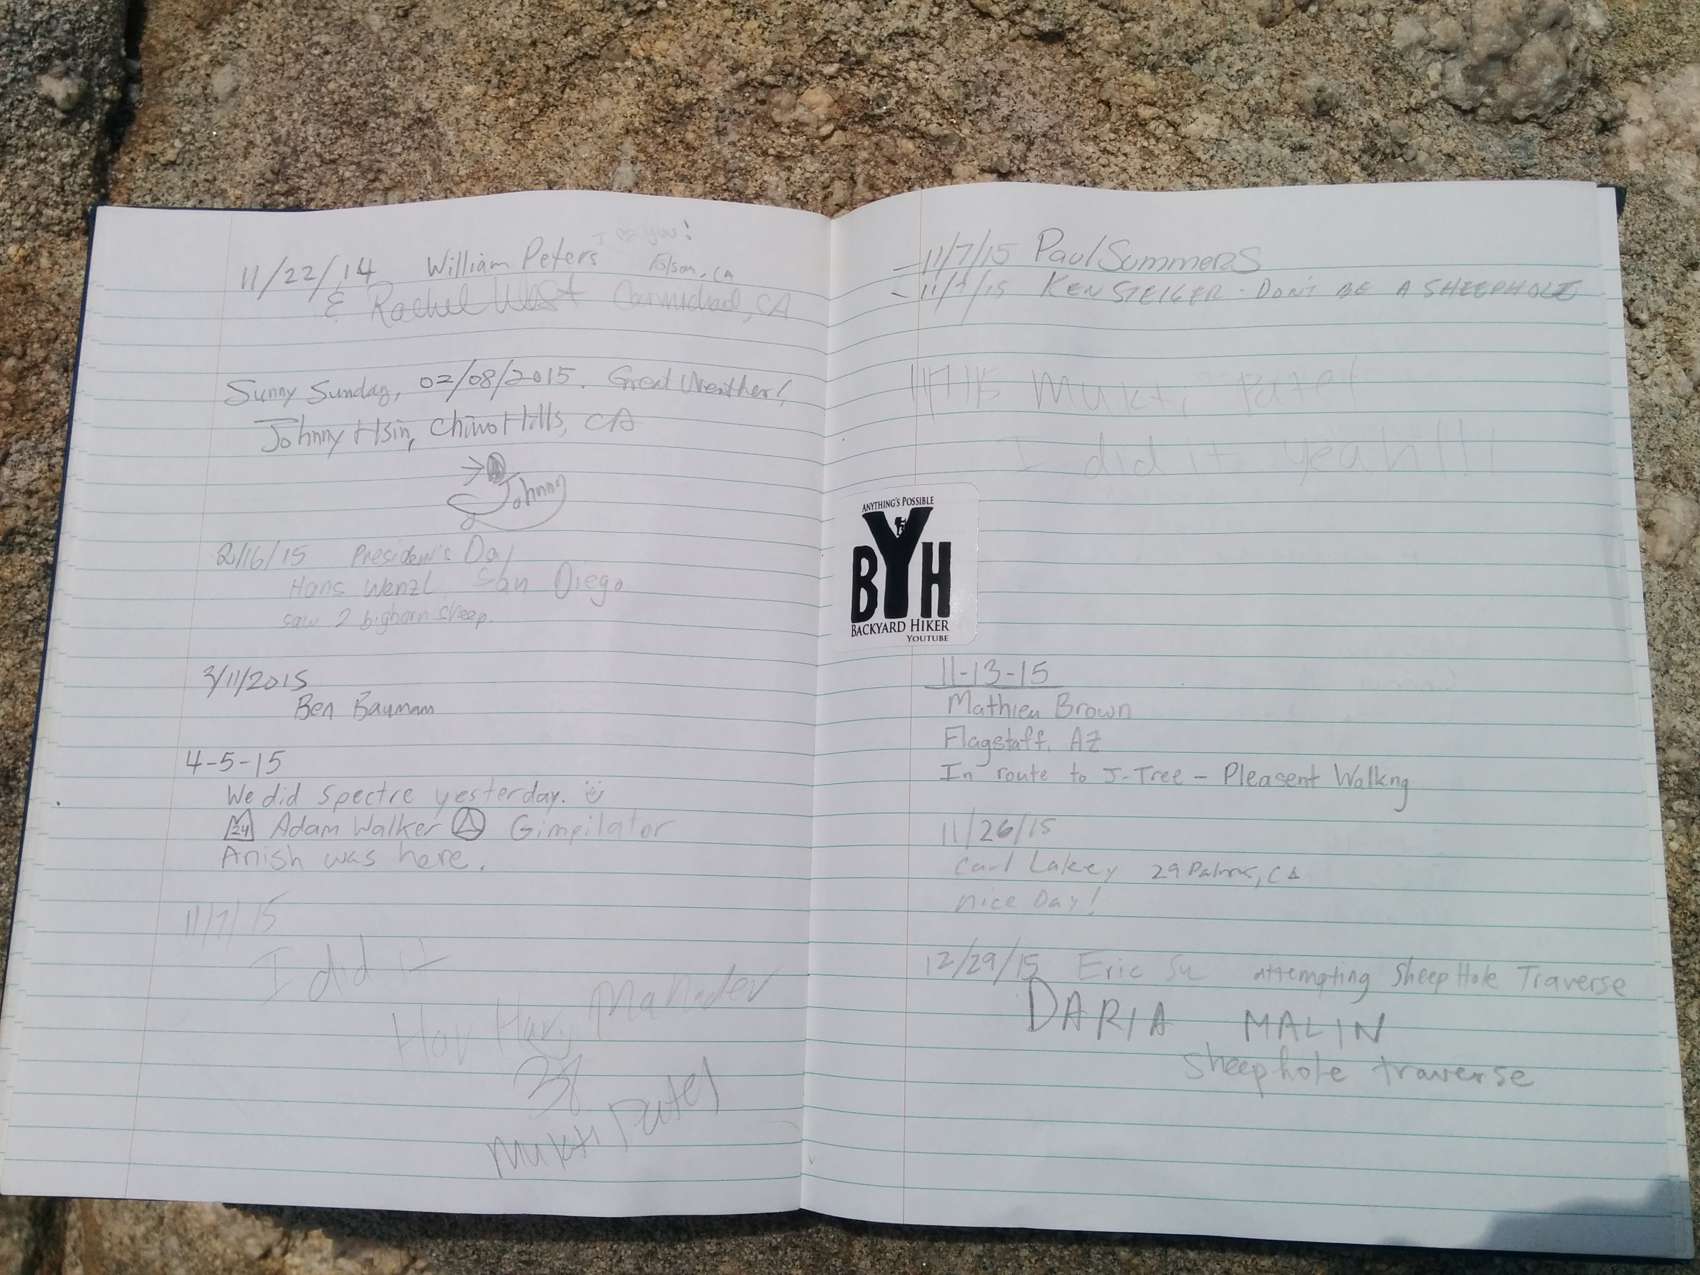 11/22/14 William Peters Folsom, CA
& Rachel West Carmichael, CA
Sunny Sunday, 02/08/2015. Great Weather!
Johnny Hsin, Chino Hills, CA
Johnny
2/16/15 President's Day
Hans Wenzl San Diego
saw 2 bighorn sheep.
3/11/2015
Ben Baumann
4-5-15
We did Spectre yesterday.
24 Adam Walker Gimpilator
Anish was here.
11/7/15
I did it
Har Har Mahadev
Mukti Patel
- 11/7/15 Paul Summers
- 11/7/15 KEN STEIGER - DON'T BE A SHEEPHOLE
11/7/15 Mukti Patel
I did it yeah!!!
ANYTHING'S POSSIBLE
BYH
BACKYARD HIKER
YOUTUBE
11-13-15
Mathieu Brown
Flagstaff, AZ
In route to J-Tree - Pleasent Walkng
11/26/15
Carl Lakey 29 Palms, CA
nice Day!
12/29/15 Eric Su attempting Sheep Hole Traverse
DARIA MALIN
sheephole traverse